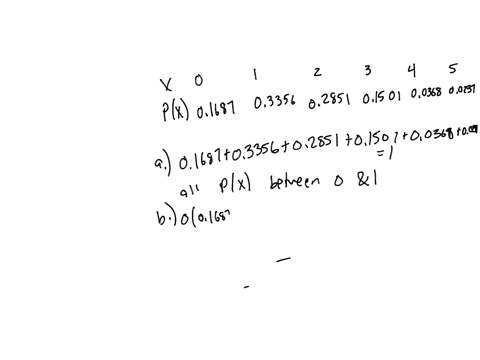 X 0 1 2 3 4 5
P(X) 0.1687 0.3356 0.2851 0.1501 0.0368 0.0237
a.) 0.1687+0.3356+0.2851+0.1501+0.0368+
=1
all P(x) between 0 &1
b.) 0(0.1687